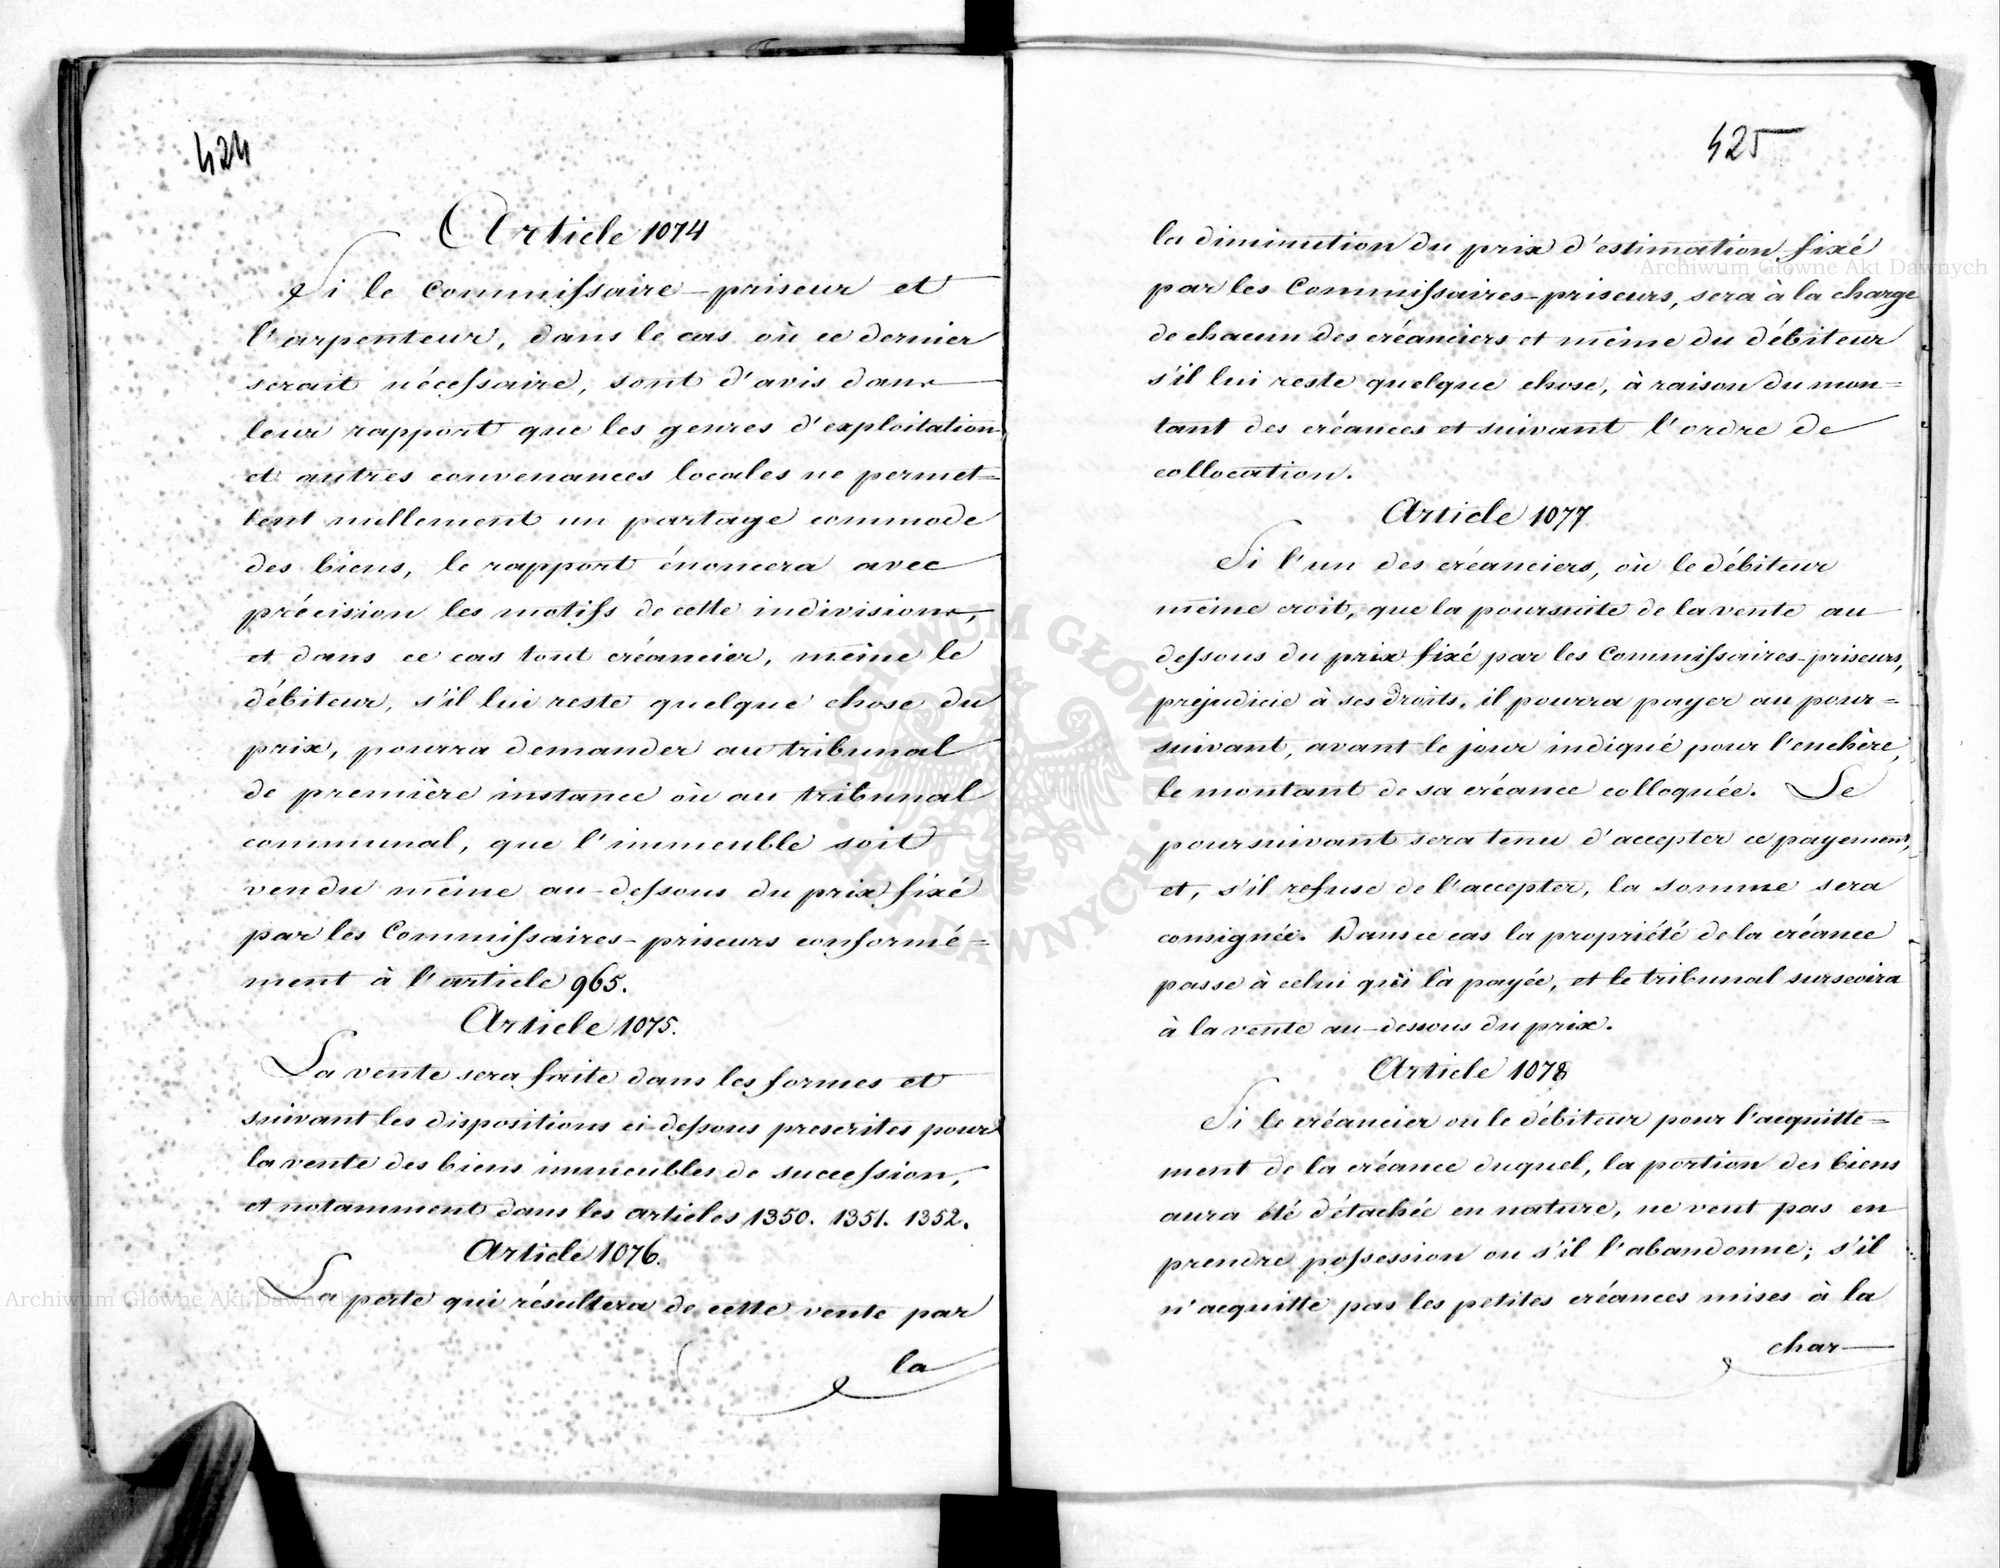 424
Article 1074
Si le Commissaire-priseur et
l'arpenteur, dans le cas où ce dernier
serait nécessaire, sont d'avis dans
leur rapport que les genres d'exploitation
et autres convenances locales ne permet=
tent nullement un partage commode
des biens, le rapport énoncera avec
précision les motifs de cette indivision,
et dans ce cas tout créancier, même le
débiteur, s'il lui reste quelque chose du
prix, pourra demander au tribunal
de première instance où au tribunal
communal, que l'immeuble soit
vendu même au-dessous du prix fixé
par les Commissaires-priseurs conformé=
ment à l'article 965.
Article 1075.
La vente sera faite dans les formes et
suivant les dispositions ci-dessous prescrites pour
la vente des biens immeubles de succession,
et notamment dans les articles 1350. 1351. 1352.
Article 1076.
La perte qui résultera de cette vente par
la
425
la diminution du prix d'estimation fixé
par les Commissaires-priseurs, sera à la charge
de chacun des créanciers et même du débiteur
s'il lui reste quelque chose, à raison du mon=
tant des créances et suivant l'ordre de
collocation.
Article 1077
Si l'un des créanciers, où le débiteur
même croit, que la poursuite de la vente au
dessous du prix fixé par les Commissaires-priseurs,
préjudicie à ses droits, il pourra payer au pour=
suivant, avant le jour indiqué pour l'enchère,
le montant de sa créance colloquée. Le
poursuivant sera tenu d'accepter ce payement,
et, s'il refuse de l'accepter, la somme sera
consignée. Dans ce cas la propriété de la créance
passe à celui qui l'à payée, et le tribunal surseoira
à la vente au-dessous du prix.
Article 1078
Si le créancier ou le débiteur pour l'acquitte=
ment de la créance duquel, la portion des biens
aura été détachée en nature, ne veut pas en
prendre possession ou s'il l'abandonne; s'il
n'acquitte pas les petites créances mises à la
char
Archiwum Główne Akt Dawnych
Archiwum Główne Akt Dawnych
ARCHIWUM GŁÓWNE · AKT DAWNYCH ·